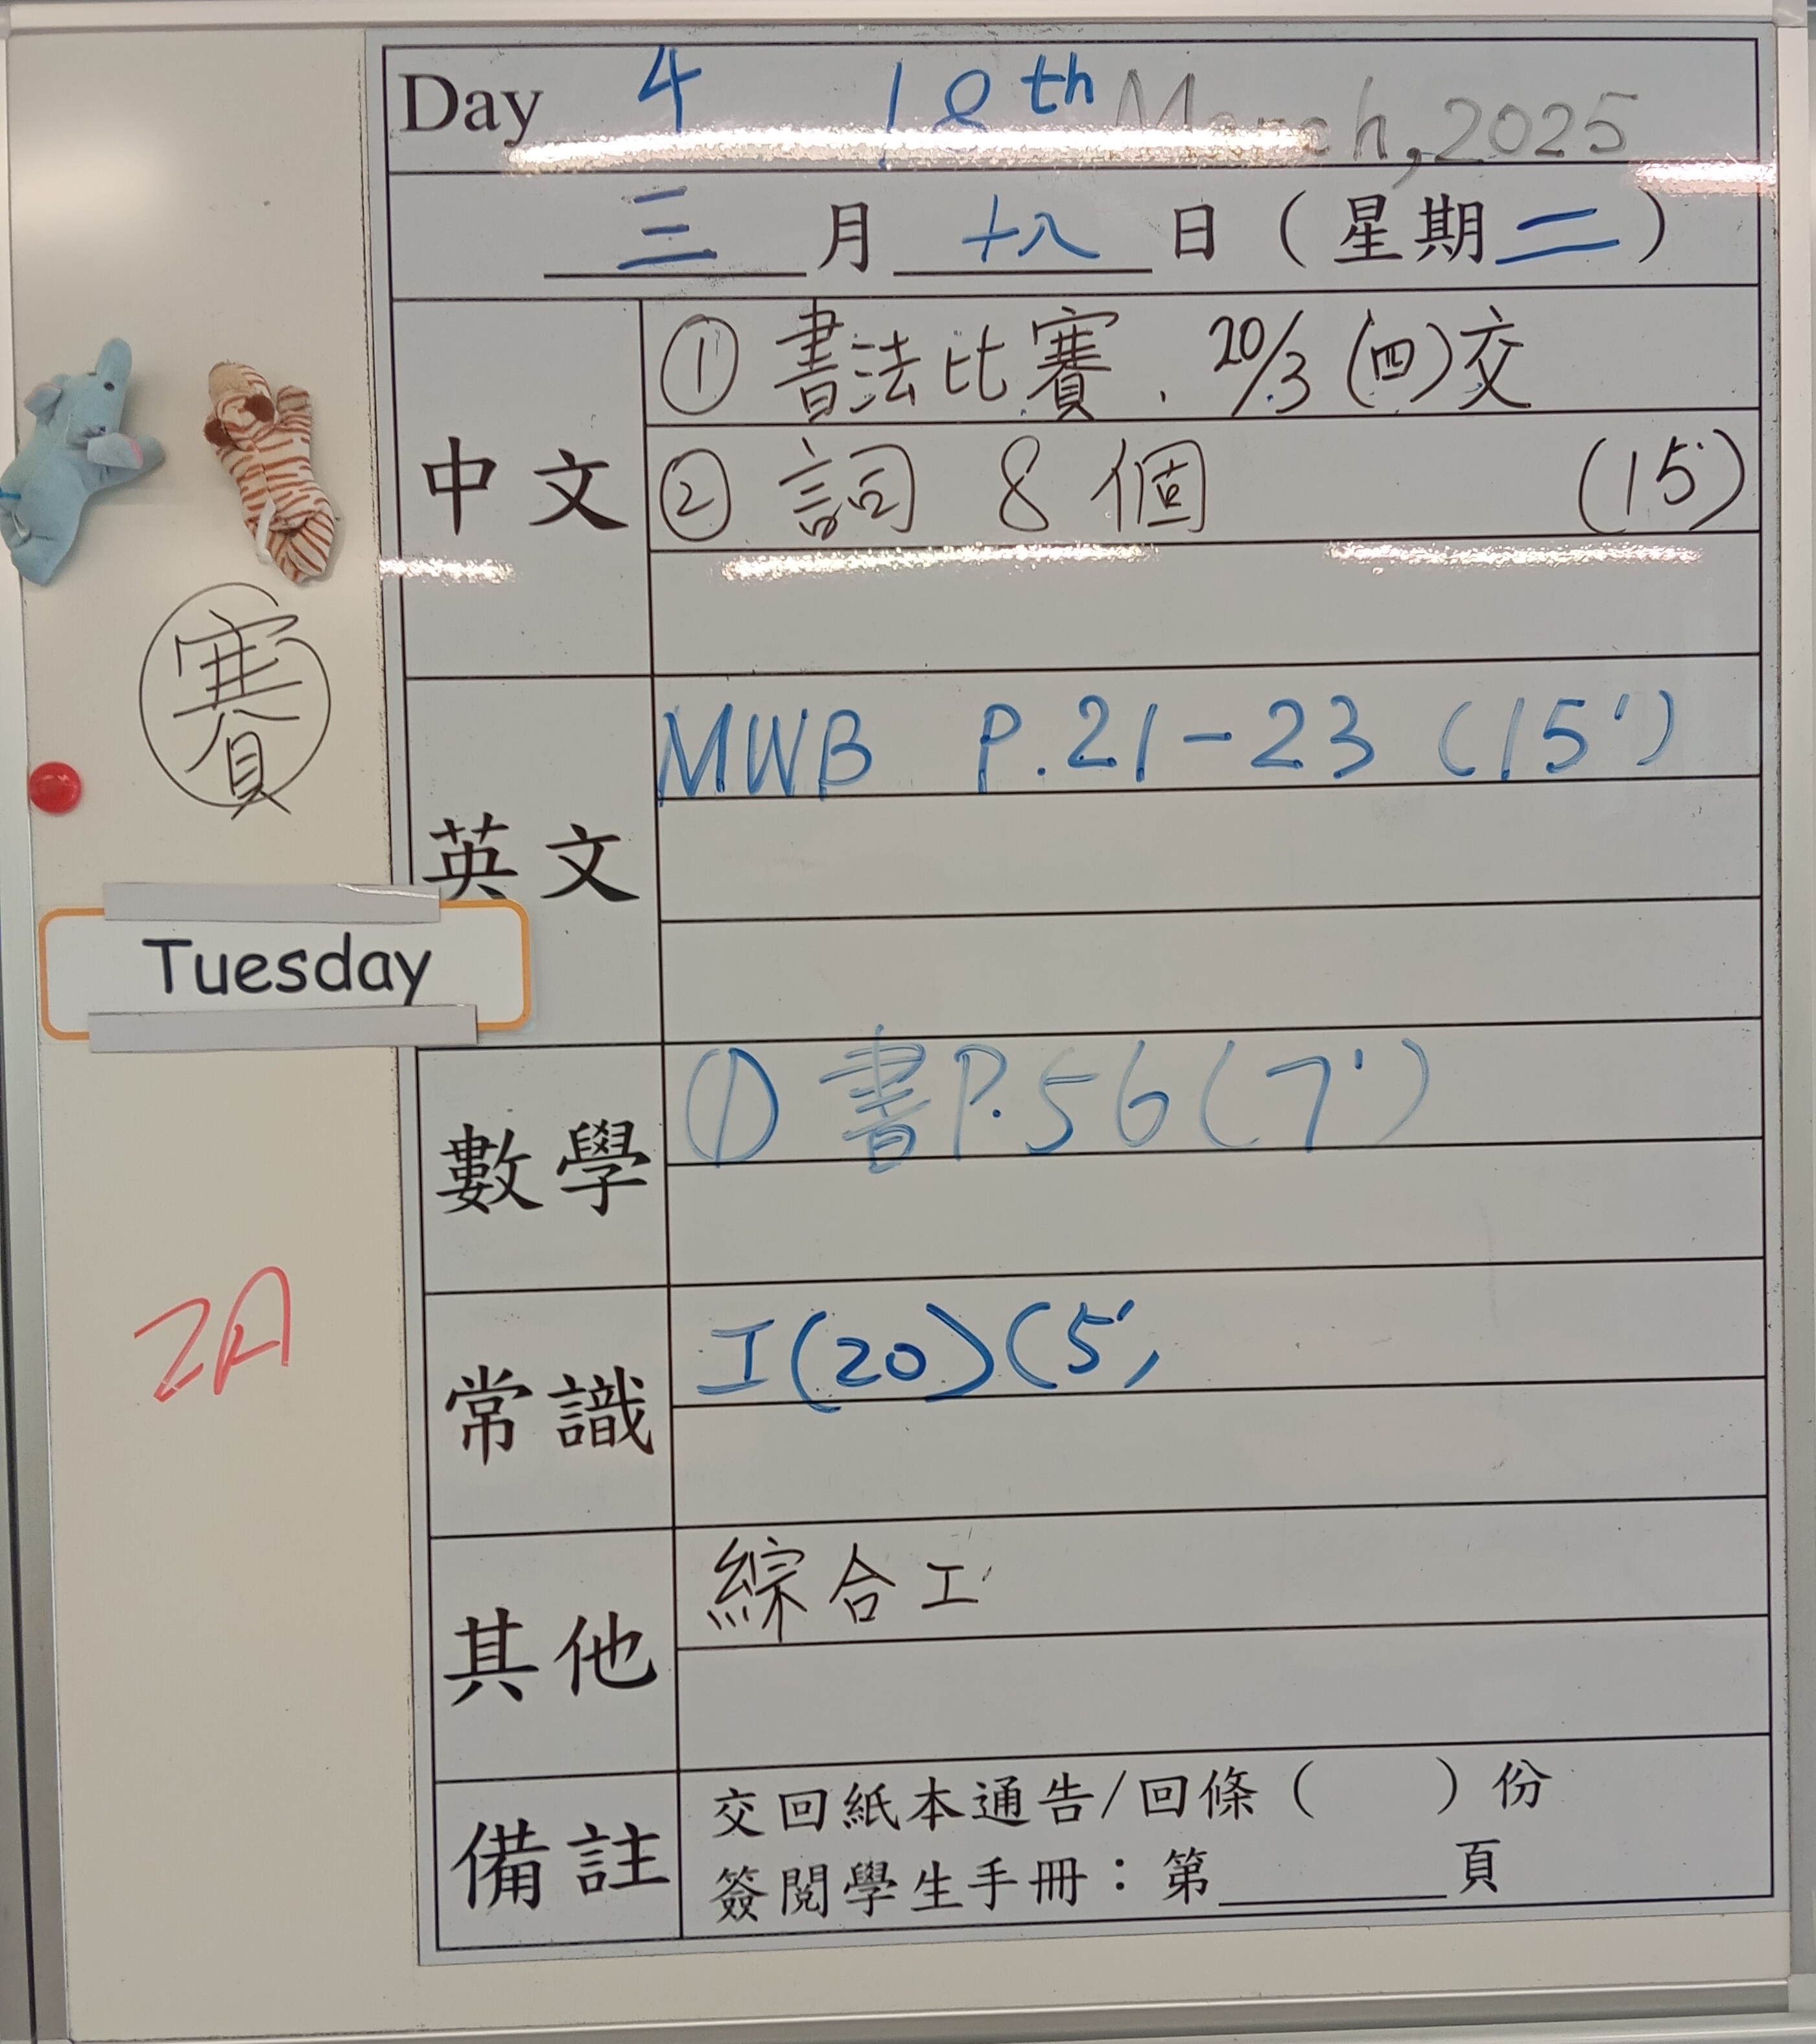 Day 4 18th March, 2025
三 月 十八 日 ( 星期 二 )
中文
① 書法比賽. 20/3 (四)交
② 詞 8 個 (15')
賽
英文
MWB P.21-23 (15')
Tuesday
數學
① 書P.56(7')
2A
常識
工(20)(5')
其他
綜合工
備註
交回紙本通告/回條 ( ) 份
簽閱學生手冊：第______頁